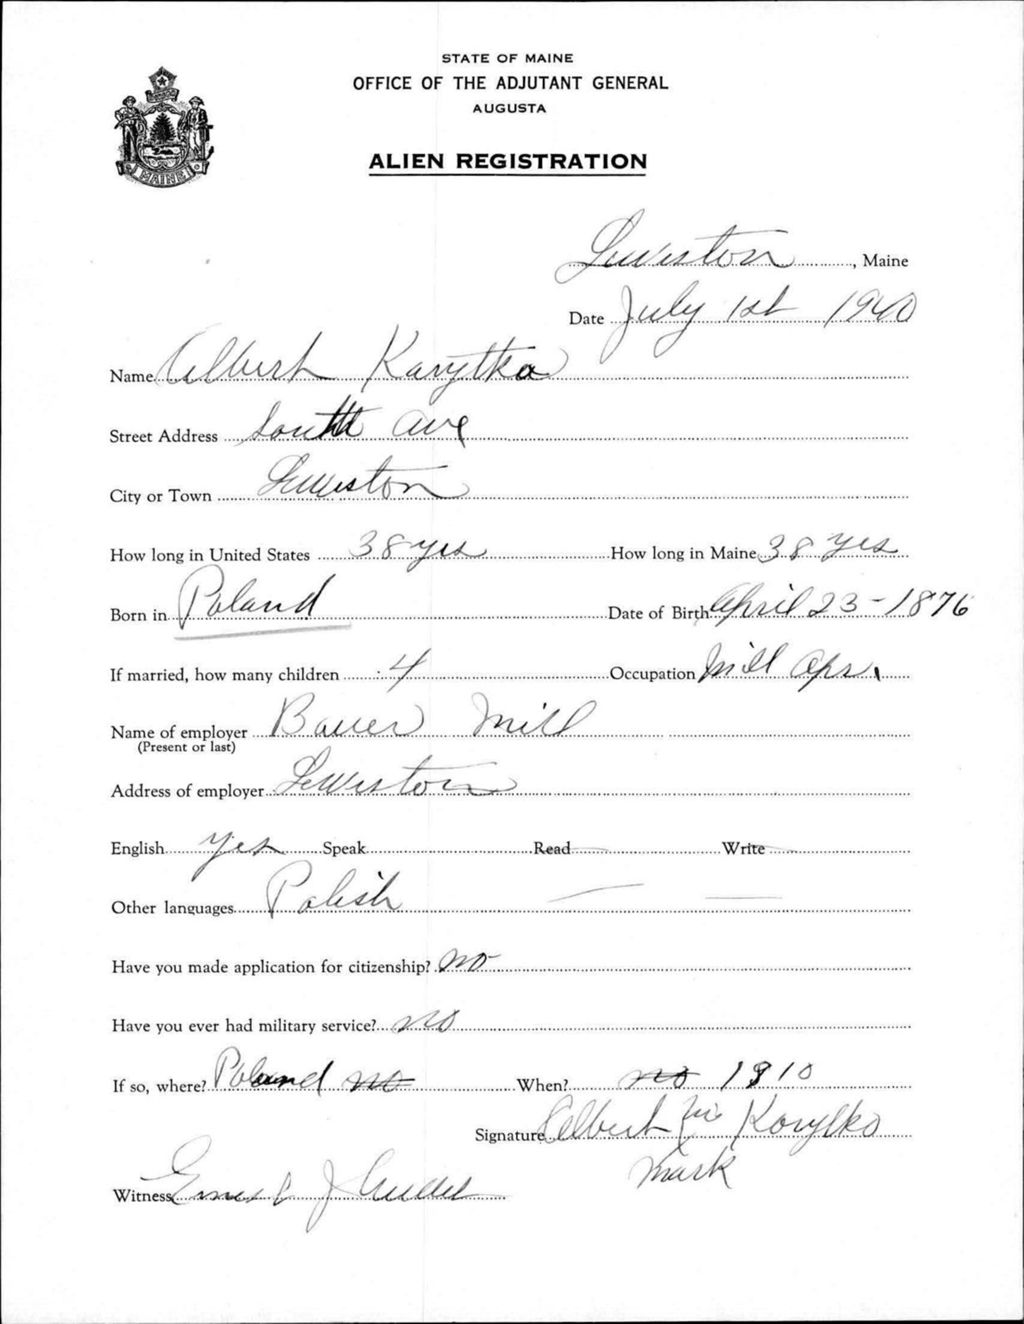 STATE OF MAINE
OFFICE OF THE ADJUTANT GENERAL
AUGUSTA
MAINE
ALIEN REGISTRATION
Lewiston, Maine
Date July 1st 1940
Name Albert Karytka
Street Address South Ave
City or Town Lewiston
How long in United States 38 yrs How long in Maine 38 yrs
Born in Poland Date of Birth April 23-1876
If married, how many children 4 Occupation Mill Opr.
Name of employer Bauer Mill
(Present or last)
Address of employer Lewiston
English Yes Speak Read — Write —
Other languages Polish — —
Have you made application for citizenship? no
Have you ever had military service? no
If so, where? Poland no When? no 1910
Signature Albert Korytko
mark
Witness Ernest J